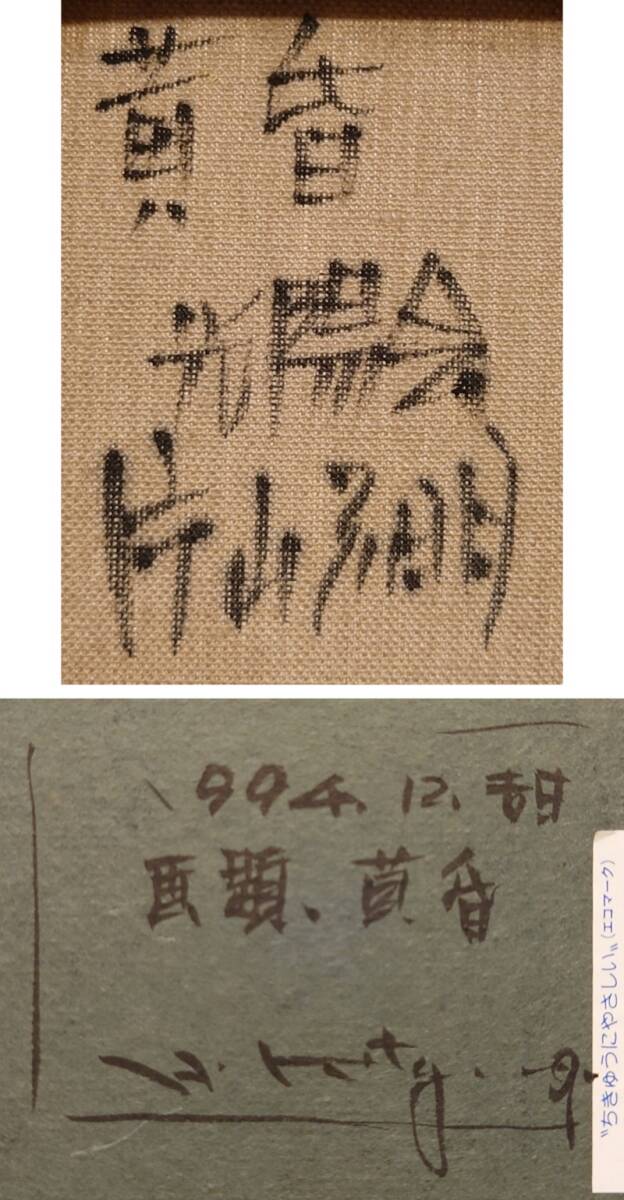 黄昏
光陽会
片山弘明
1994.12.
画題.黄昏
"ちきゅうにやさしい"(エコマーク)